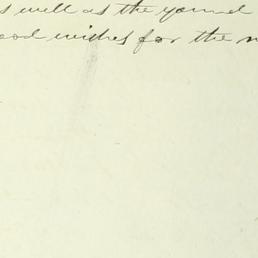 well as the
good wishes for the